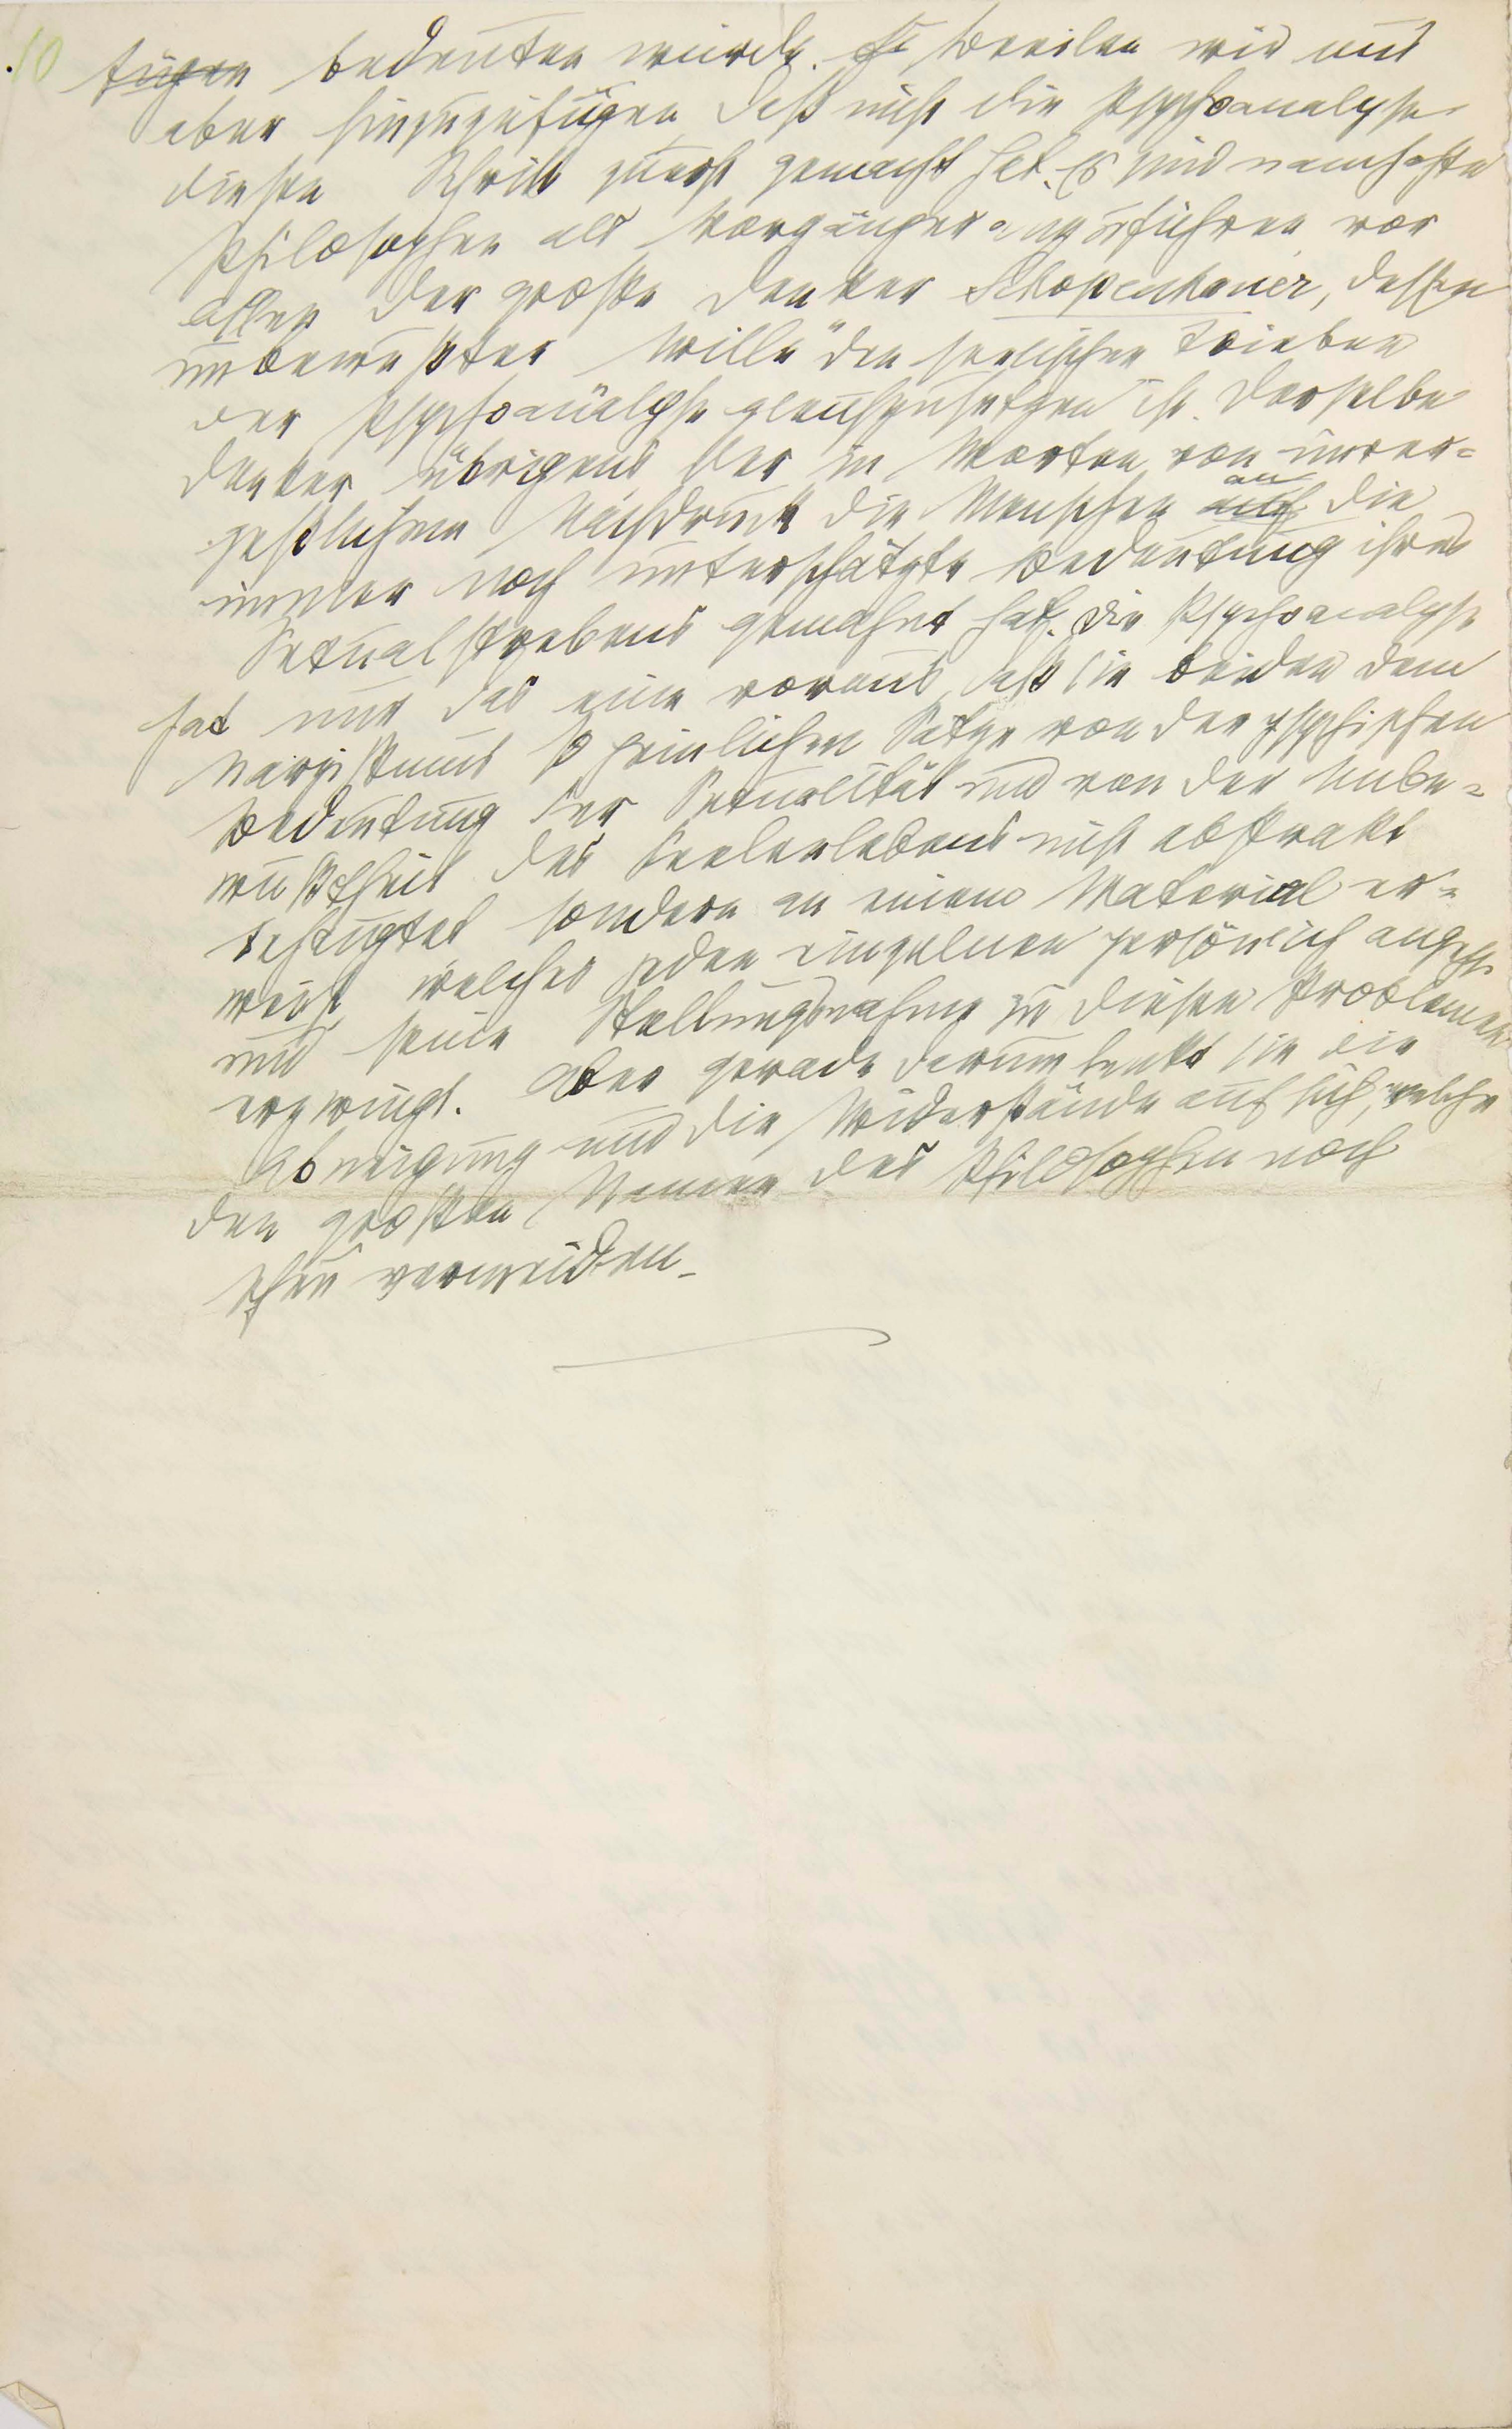 10
fügen bedeuten würde. Es beeilen wir uns
aber hinzuzufügen, daß nicht die Psychoanalyse
diesen Schritt zuerst gemacht hat. Es sind namhafte
Philosophen als Vorgänger anzuführen, vor
allen der große Denker Schopenhauer, dessen
unbewußter „Wille" den seelischen Trieben
der Psychoanalyse gleichzusetzen ist. Derselbe
Denker übrigens, der in Worten von unver-
geßlichem Nachdruck die Menschen an die
immer noch unterschätzte Bedeutung ihres
Sexualstrebens gemahnt hat. Die Psychoanalyse
hat nur das eine voraus, daß sie beiden dem
Narzißmus so peinlichen Sätze von der psychischen
Bedeutung der Sexualität und von der Unbe-
wußtheit des Seelenlebens nicht abstrakt
behauptet, sondern an einem Material er-
weist, welches jeden einzelnen persönlich angeht
und seine Stellungnahme zu diesen Problemen
erzwingt. Aber gerade darum lenkt sie die
Abneigung und die Widerstände auf sich, welche
den großen Namen des Philosophen noch
scheu vermeiden.